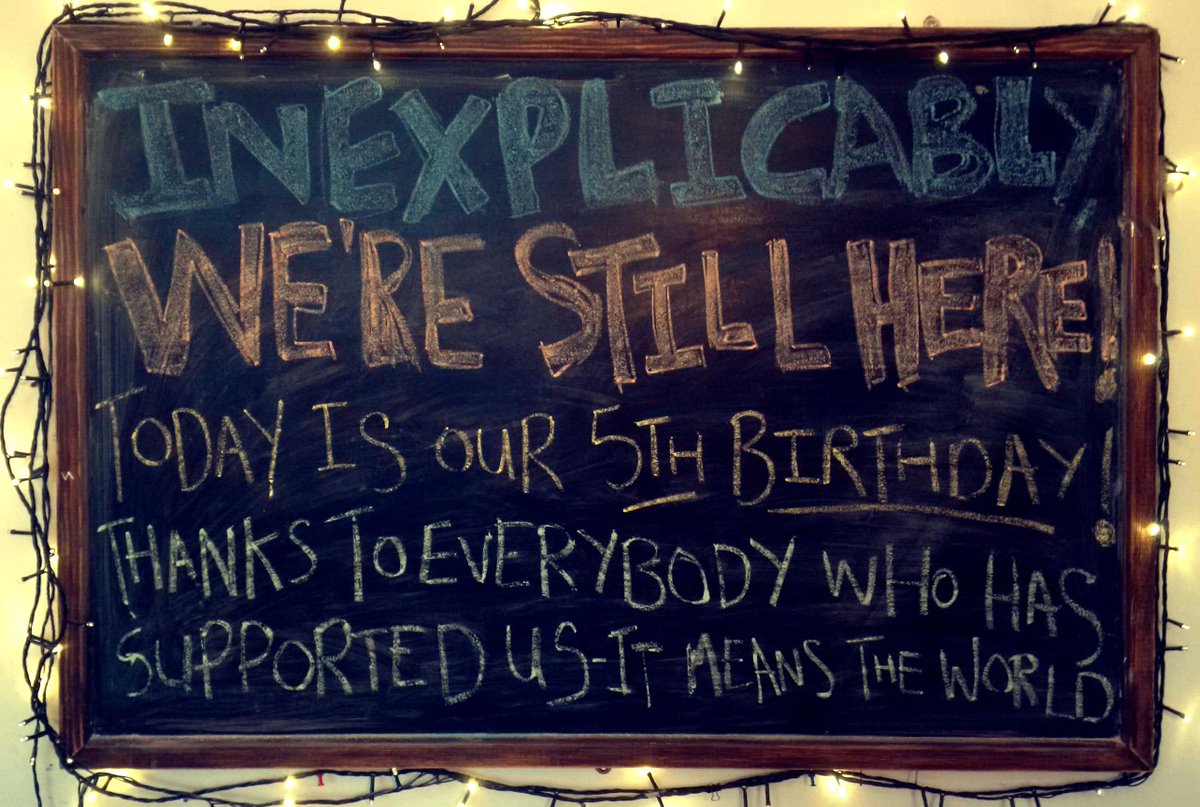 INEXPLICABLY,
WE'RE STILL HERE!
TODAY IS OUR 5TH BIRTHDAY!
THANKS TO EVERYBODY WHO HAS
SUPPORTED US-IT MEANS THE WORLD